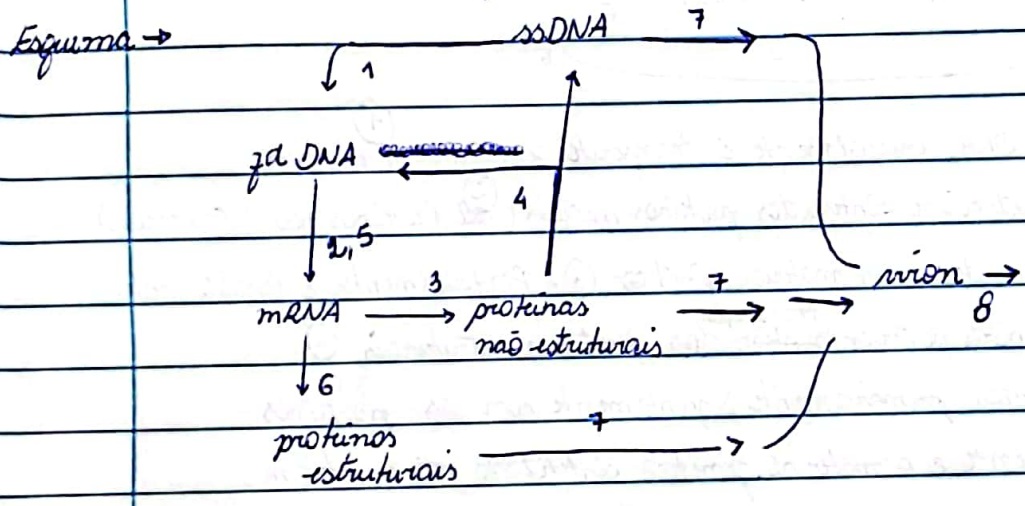 Esquema →
ssDNA
7
1
fd DNA
4
2,5
mRNA
3
proteinas
não estruturais
7
virion →
8
6
proteinas
estruturais
7